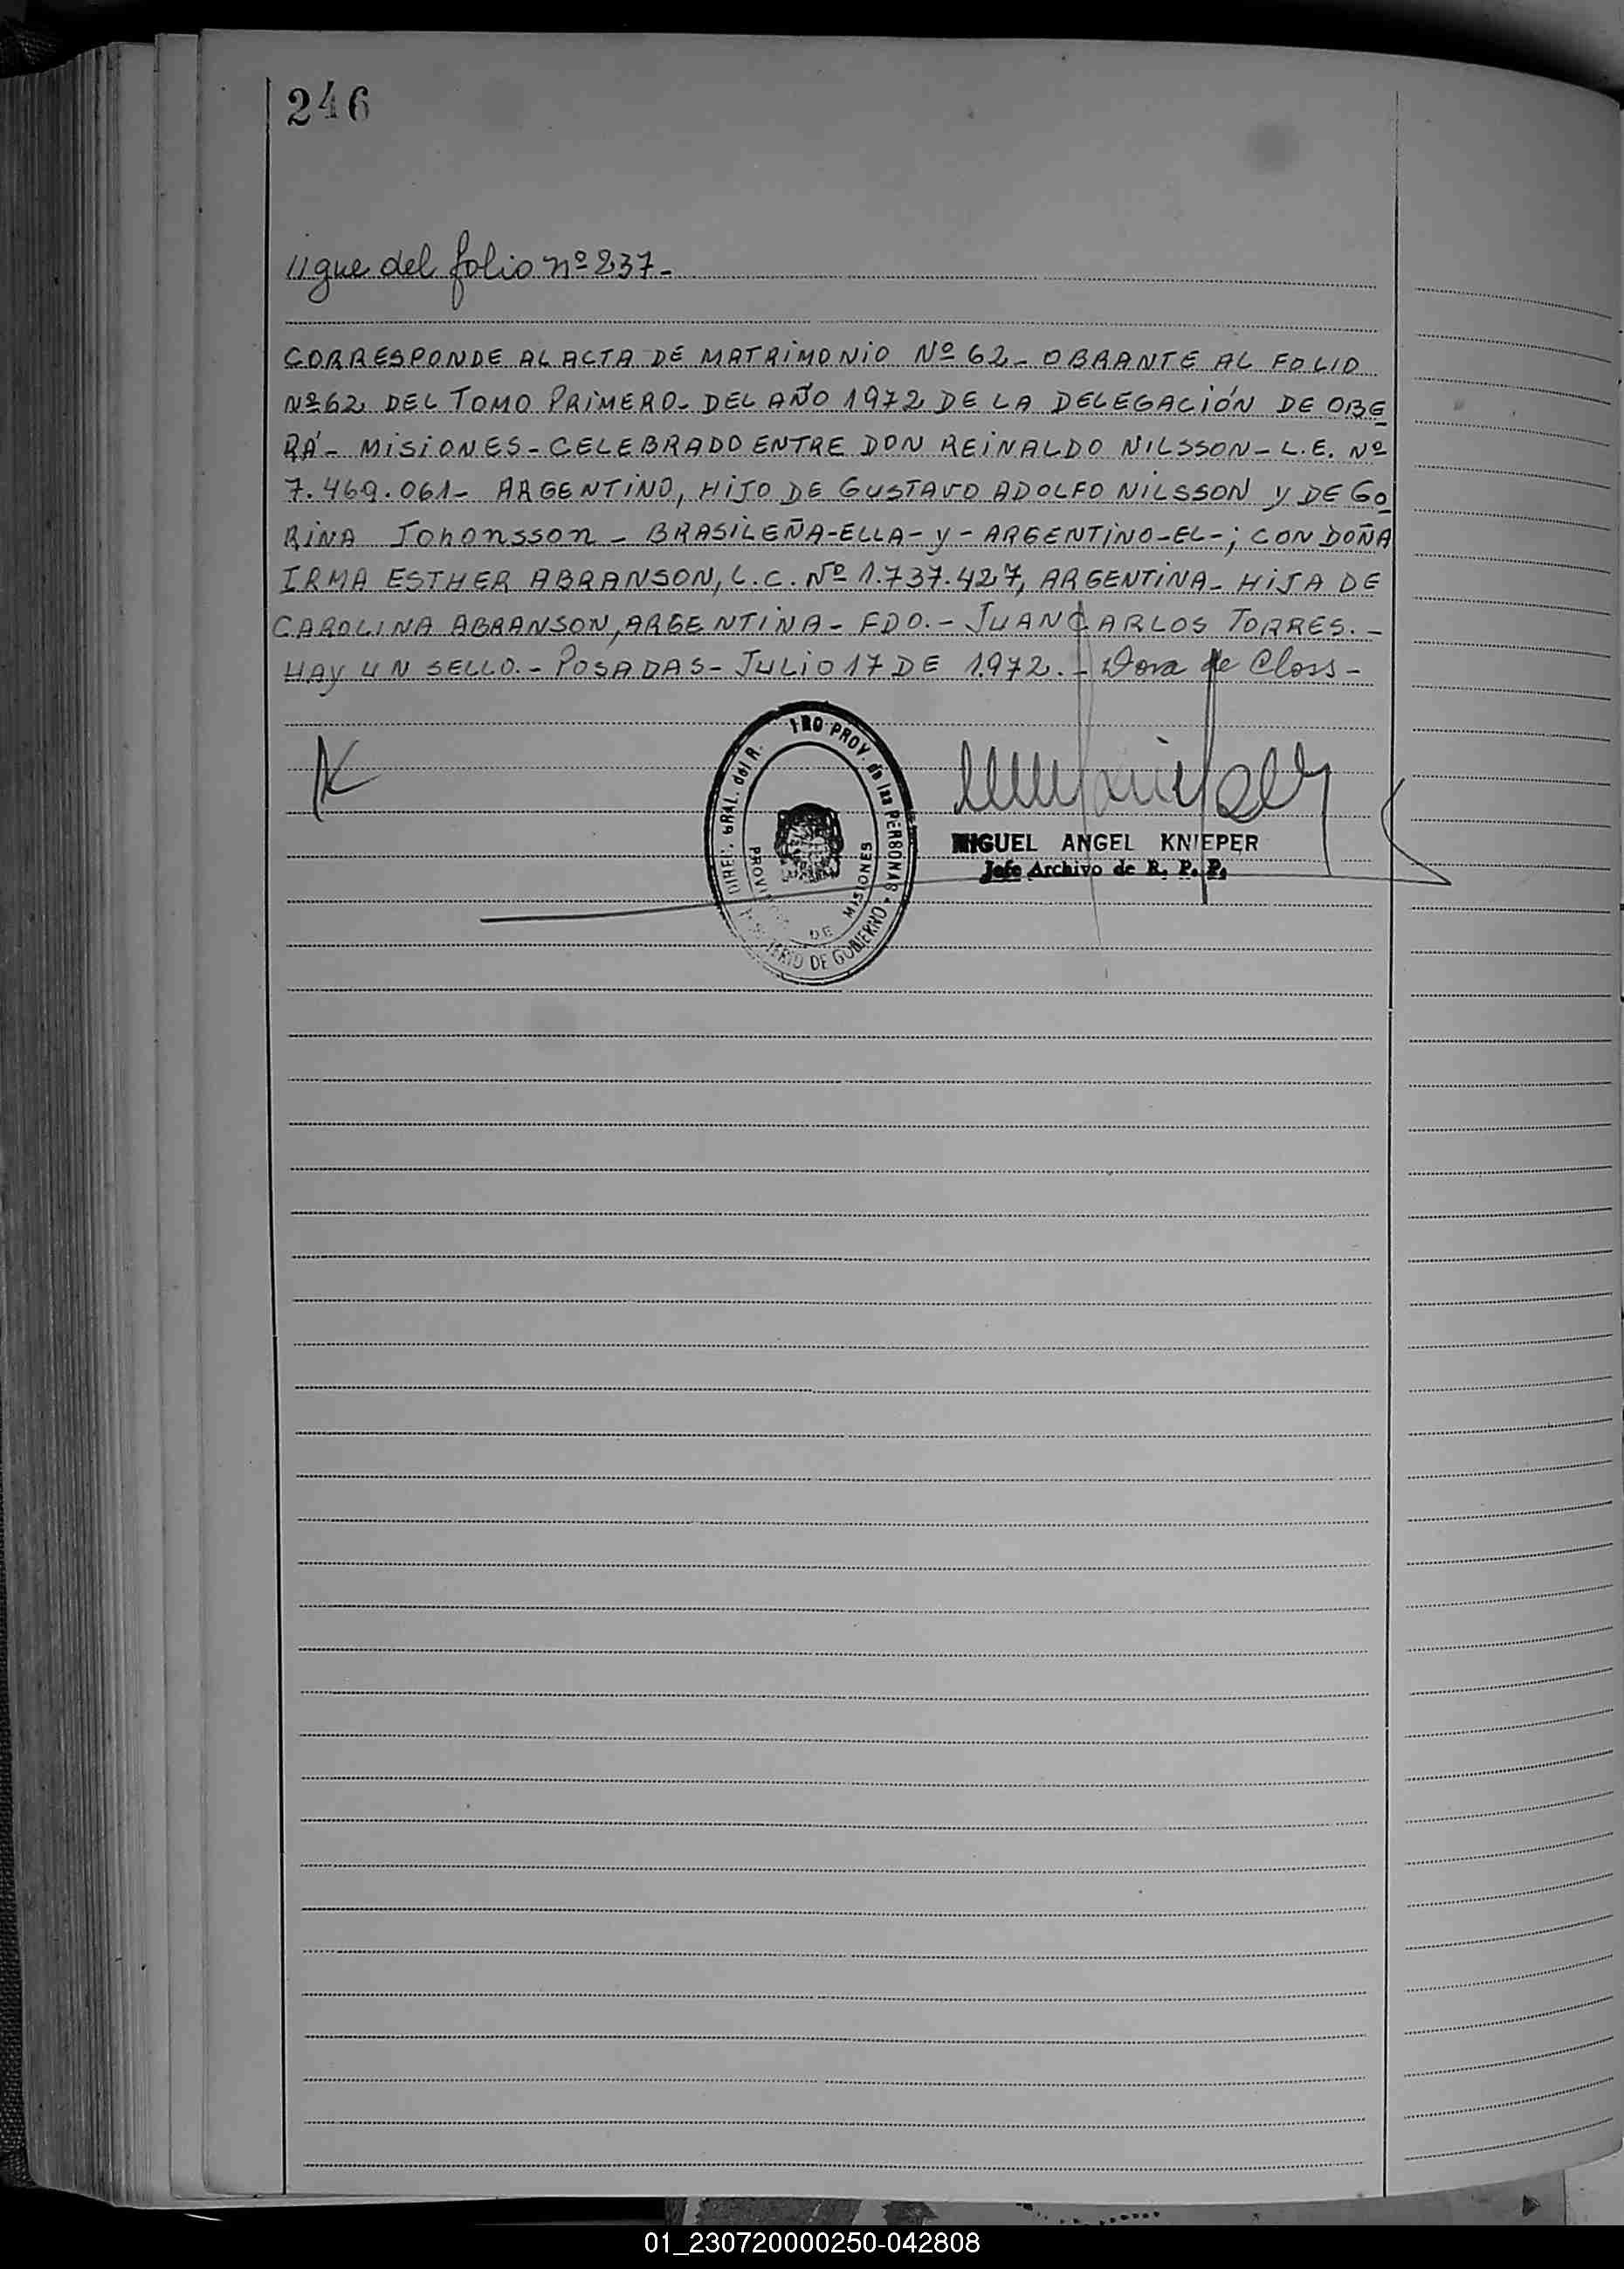 246
//gue del folio nº 237-
CORRESPONDE AL ACTA DE MATRIMONIO Nº 62- OBRANTE AL FOLIO
Nº 62 DEL TOMO PRIMERO- DEL AÑO 1972 DE LA DELEGACIÓN DE OBE
RÁ- MISIONES- CELEBRADO ENTRE DON REINALDO NILSSON- L.E. Nº
7.469.061- ARGENTINO, HIJO DE GUSTAVO ADOLFO NILSSON y DE GO
RINA Johonsson - BRASILEÑA-ELLA- y - ARGENTINO-EL-; CON DOÑA
IRMA ESTHER ABRANSON, L.C. Nº 1.737.427, ARGENTINA- HIJA DE
CAROLINA ABRANSON, ARGENTINA- FDO.- JUAN CARLOS TORRES.-
HAY UN SELLO.- POSADAS- JULIO 17 DE 1.972.- Dora de Closs-
DIREC. GRAL. del R. TRO PROV. de las PERSONAS
DE GOBIERNO
DE MISIONES
MIGUEL ANGEL KNIEPER
Jefe Archivo de R. P. P.
01_230720000250-042808